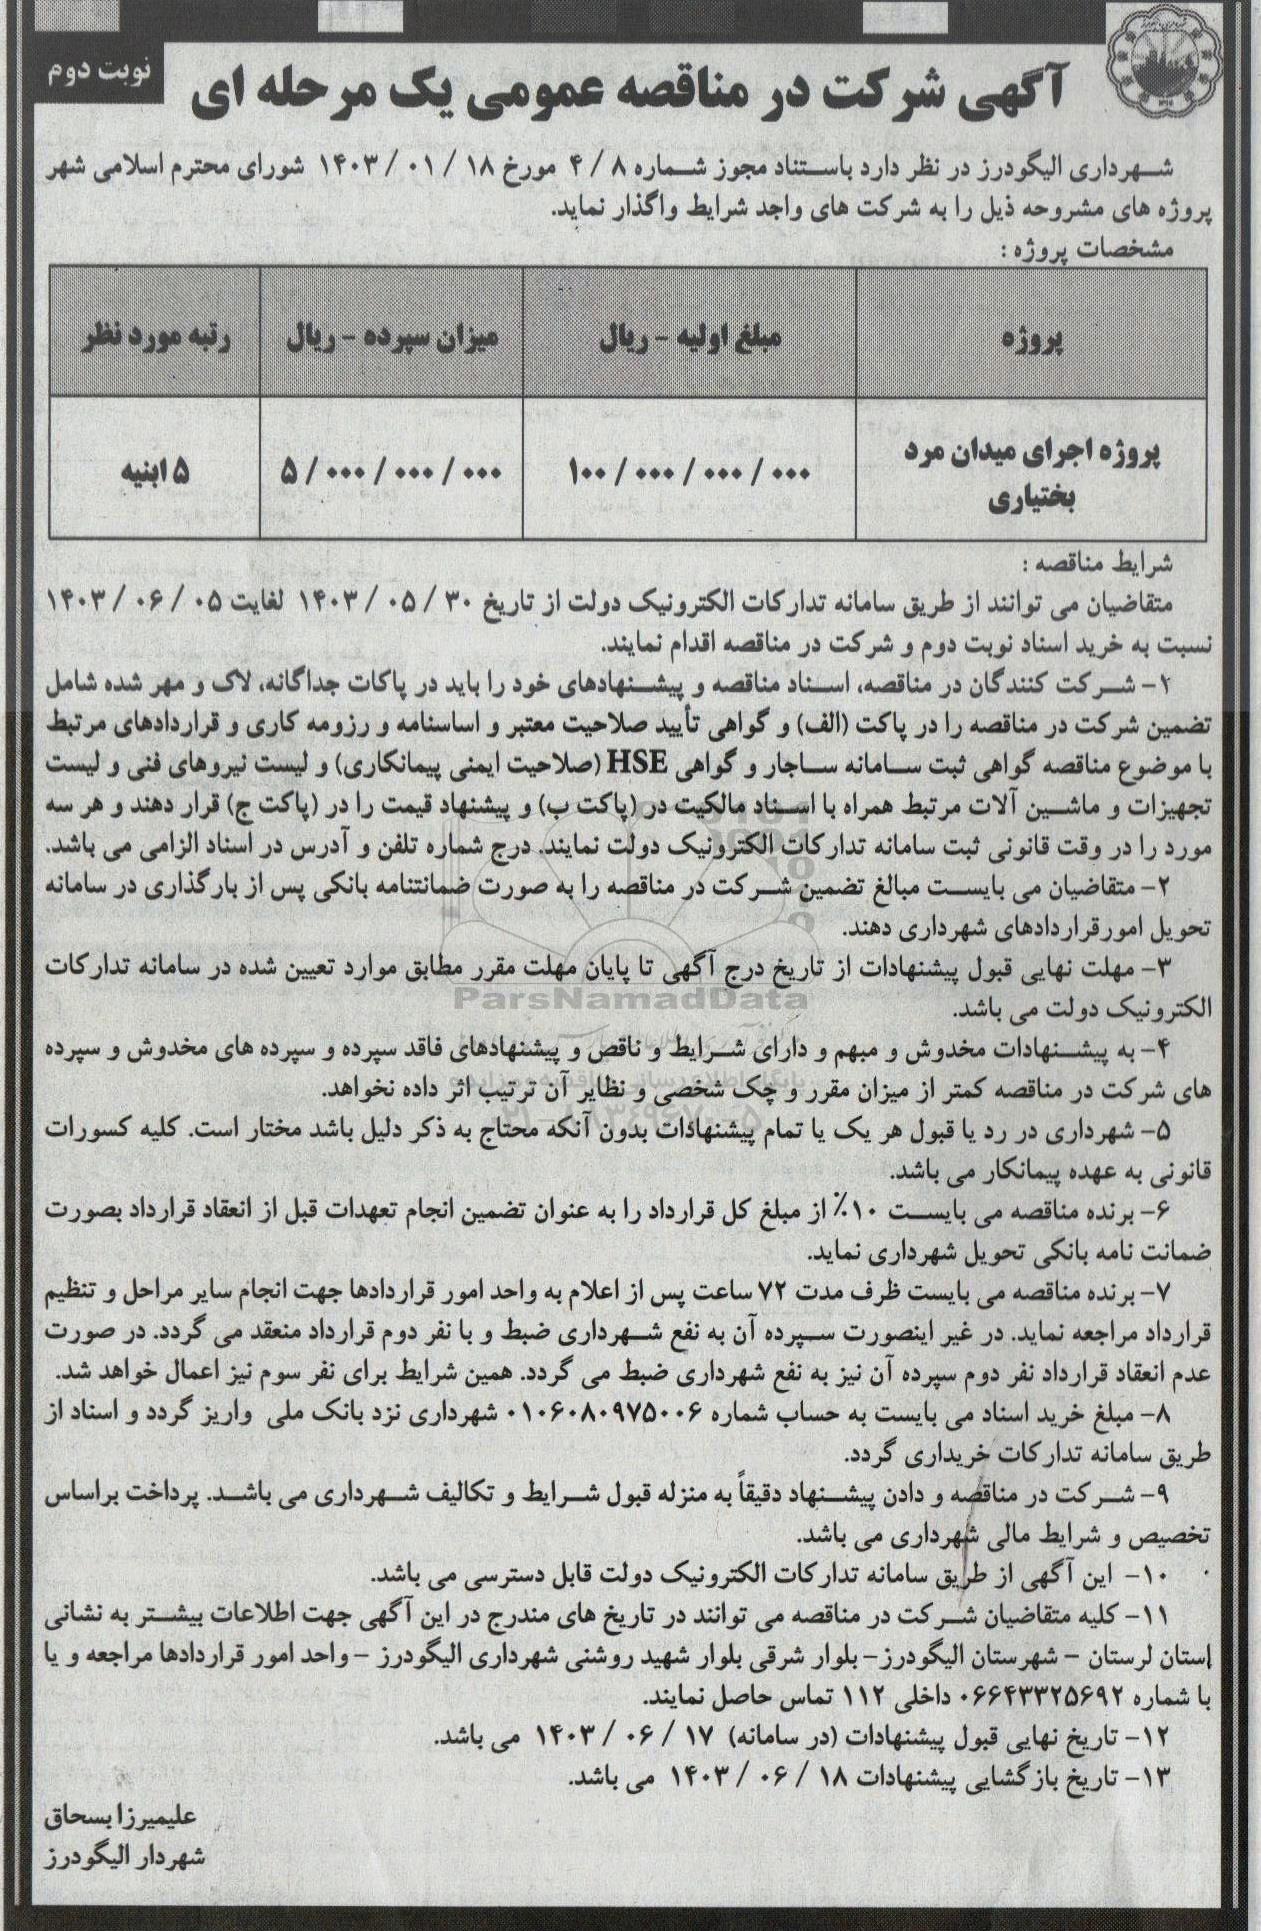 نوبت دوم
آگهی شرکت در مناقصه عمومی یک مرحله ای
شهرداری الیگودرز در نظر دارد باستناد مجوز شماره ۸ / ۴ مورخ ۱۸ / ۰۱ / ۱۴۰۳ شورای محترم اسلامی شهر
پروژه های مشروحه ذیل را به شرکت های واجد شرایط واگذار نماید.
مشخصات پروژه :
پروژه
مبلغ اولیه - ریال
میزان سپرده - ریال
رتبه مورد نظر
پروژه اجرای میدان مرد
بختیاری
۱۰۰/۰۰۰/۰۰۰/۰۰۰
۵/۰۰۰/۰۰۰/۰۰۰
۵ ابنیه
شرایط مناقصه :
متقاضیان می توانند از طریق سامانه تدارکات الکترونیک دولت از تاریخ ۳۰ / ۰۵ / ۱۴۰۳ لغایت ۰۵ / ۰۶ / ۱۴۰۳
نسبت به خرید اسناد نوبت دوم و شرکت در مناقصه اقدام نمایند.
۱- شرکت کنندگان در مناقصه، اسناد مناقصه و پیشنهادهای خود را باید در پاکات جداگانه، لاک و مهر شده شامل
تضمین شرکت در مناقصه را در پاکت (الف) و گواهی تأیید صلاحیت معتبر و اساسنامه و رزومه کاری و قراردادهای مرتبط
با موضوع مناقصه گواهی ثبت سامانه ساجار و گواهی HSE (صلاحیت ایمنی پیمانکاری) و لیست نیروهای فنی و لیست
تجهیزات و ماشین آلات مرتبط همراه با اسناد مالکیت در (پاکت ب) و پیشنهاد قیمت را در (پاکت ج) قرار دهند و هر سه
مورد را در وقت قانونی ثبت سامانه تدارکات الکترونیک دولت نمایند. درج شماره تلفن و آدرس در اسناد الزامی می باشد.
۲- متقاضیان می بایست مبالغ تضمین شرکت در مناقصه را به صورت ضمانتنامه بانکی پس از بارگذاری در سامانه
تحویل امورقراردادهای شهرداری دهند.
۳- مهلت نهایی قبول پیشنهادات از تاریخ درج آگهی تا پایان مهلت مقرر مطابق موارد تعیین شده در سامانه تدارکات
الکترونیک دولت می باشد.
ParsNamadData
۴- به پیشنهادات مخدوش و مبهم و دارای شرایط و ناقص و پیشنهادهای فاقد سپرده و سپرده های مخدوش و سپرده
های شرکت در مناقصه کمتر از میزان مقرر و چک شخصی و نظایر آن ترتیب اثر داده نخواهد.
۵- شهرداری در رد یا قبول هر یک یا تمام پیشنهادات بدون آنکه محتاج به ذکر دلیل باشد مختار است. کلیه کسورات
قانونی به عهده پیمانکار می باشد.
۶- برنده مناقصه می بایست ۱۰٪ از مبلغ کل قرارداد را به عنوان تضمین انجام تعهدات قبل از انعقاد قرارداد بصورت
ضمانت نامه بانکی تحویل شهرداری نماید.
۷- برنده مناقصه می بایست ظرف مدت ۷۲ ساعت پس از اعلام به واحد امور قراردادها جهت انجام سایر مراحل و تنظیم
قرارداد مراجعه نماید. در غیر اینصورت سپرده آن به نفع شهرداری ضبط و با نفر دوم قرارداد منعقد می گردد. در صورت
عدم انعقاد قرارداد نفر دوم سپرده آن نیز به نفع شهرداری ضبط می گردد. همین شرایط برای نفر سوم نیز اعمال خواهد شد.
۸- مبلغ خرید اسناد می بایست به حساب شماره ۰۱۰۶۰۸۰۹۷۵۰۰۶ شهرداری نزد بانک ملی واریز گردد و اسناد از
طریق سامانه تدارکات خریداری گردد.
۹- شرکت در مناقصه و دادن پیشنهاد دقیقاً به منزله قبول شرایط و تکالیف شهرداری می باشد. پرداخت براساس
تخصیص و شرایط مالی شهرداری می باشد.
۱۰- این آگهی از طریق سامانه تدارکات الکترونیک دولت قابل دسترسی می باشد.
۱۱- کلیه متقاضیان شرکت در مناقصه می توانند در تاریخ های مندرج در این آگهی جهت اطلاعات بیشتر به نشانی
استان لرستان - شهرستان الیگودرز- بلوار شرقی بلوار شهید روشنی شهرداری الیگودرز - واحد امور قراردادها مراجعه و یا
با شماره ۰۶۶۴۳۳۲۵۶۹۲ داخلی ۱۱۲ تماس حاصل نمایند.
۱۲- تاریخ نهایی قبول پیشنهادات (در سامانه) ۱۷ / ۰۶ / ۱۴۰۳ می باشد.
۱۳- تاریخ بازگشایی پیشنهادات ۱۸ / ۰۶ / ۱۴۰۳ می باشد.
علیمیرزا بسحاق
شهردار الیگودرز